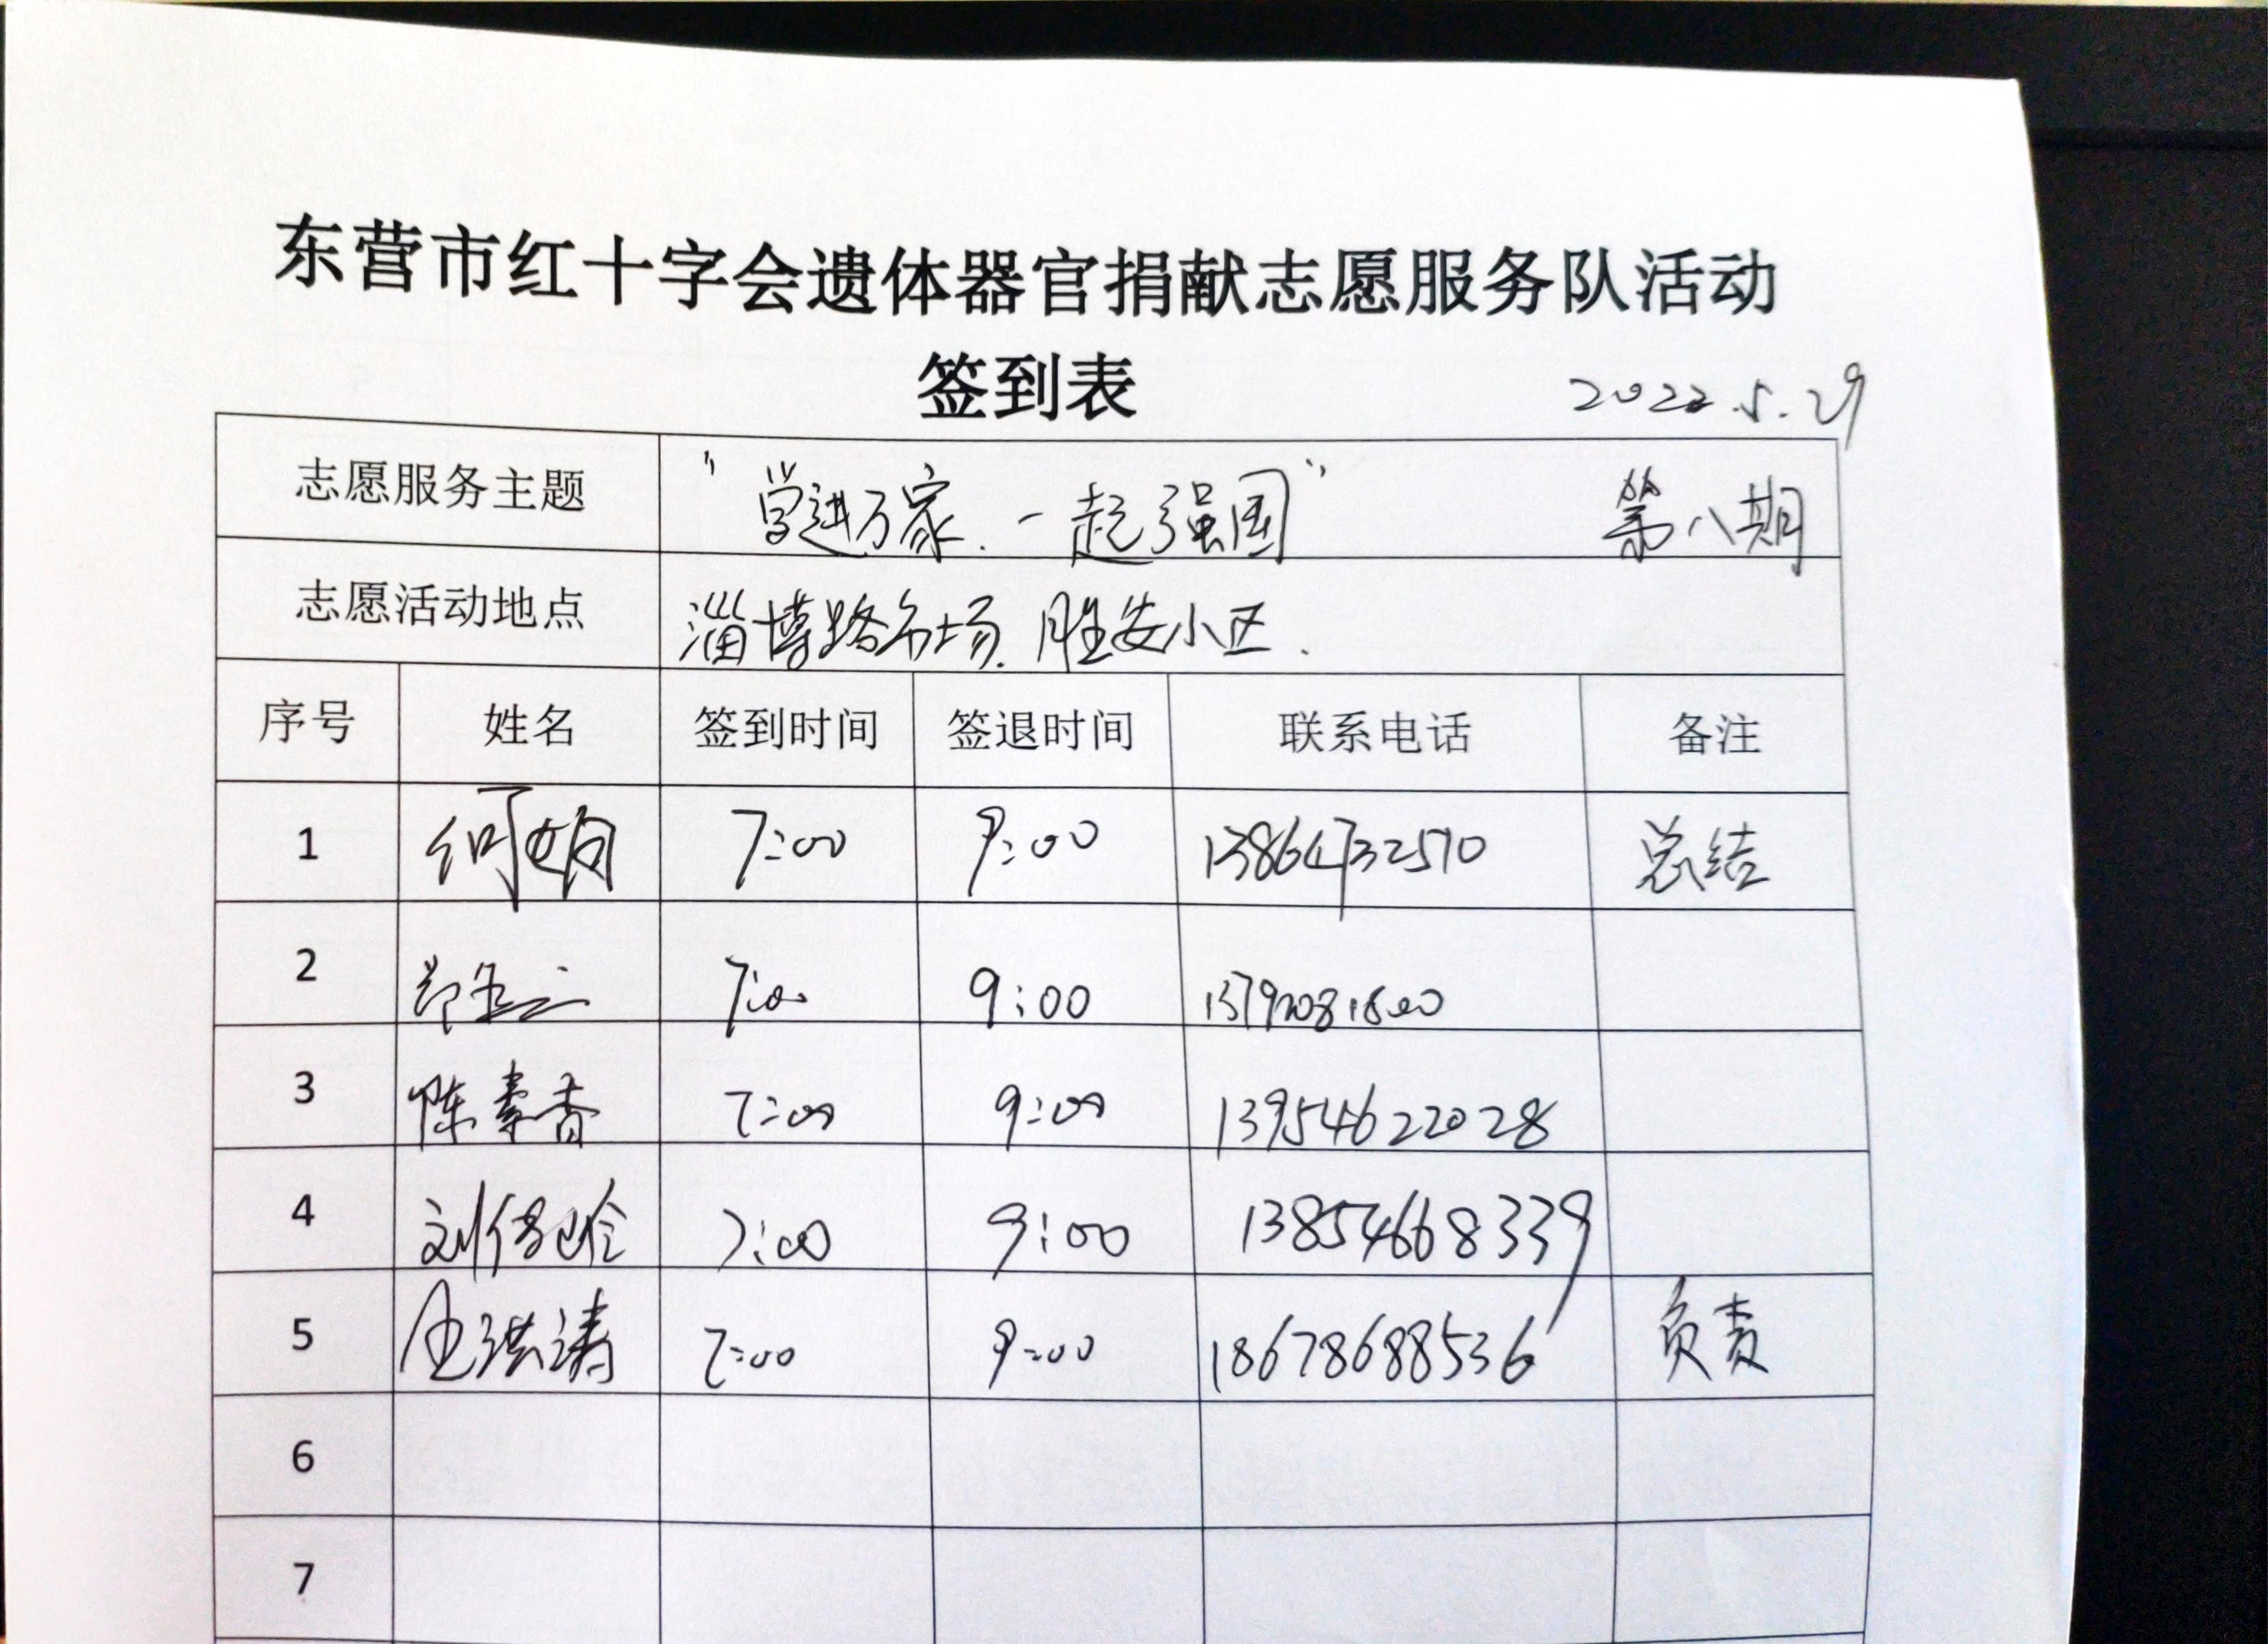 东营市红十字会遗体器官捐献志愿服务队活动
签到表
2022.5.29
志愿服务主题 "学进万家.一起强国" 第八期
志愿活动地点 淄博路市场.胜安小区.
序号 姓名 签到时间 签退时间 联系电话 备注
1 何娟 7:00 9:00 13864732570 总结
2 7:00 9:00
3 陈素香 7:00 9:00 13954622028
4 7:00 9:00 13854668339
5 7:00 9:00 18678688536 负责
6
7